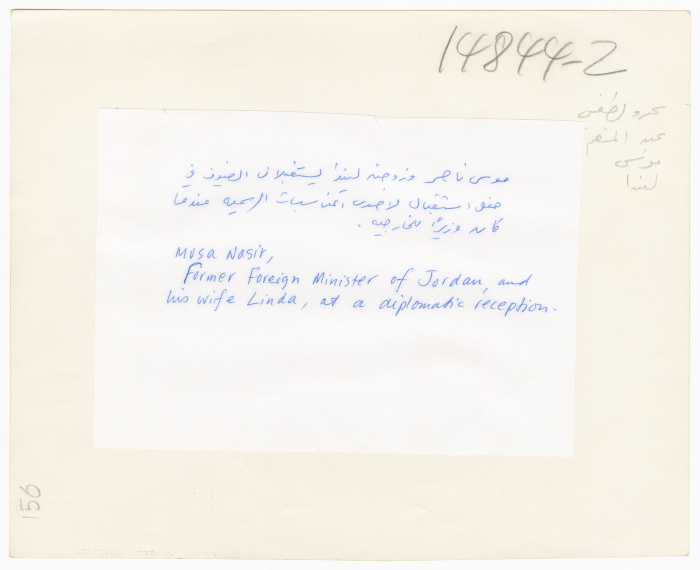 14844-2
عبد المنعم
موسى
لندا
موسى ناصر وزوجته ليندا يستقبلان الضيوف في
حفل استقبال لاحدى المناسبات الرسمية عندما
كان وزيراً للخارجيه.
Musa Nasir,
Former Foreign Minister of Jordan, and
his wife Linda, at a diplomatic reception.
156